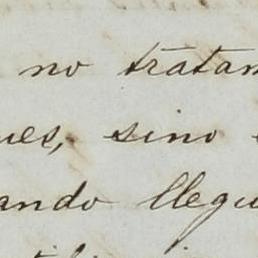 no tratam
ues, sino
ando llegu